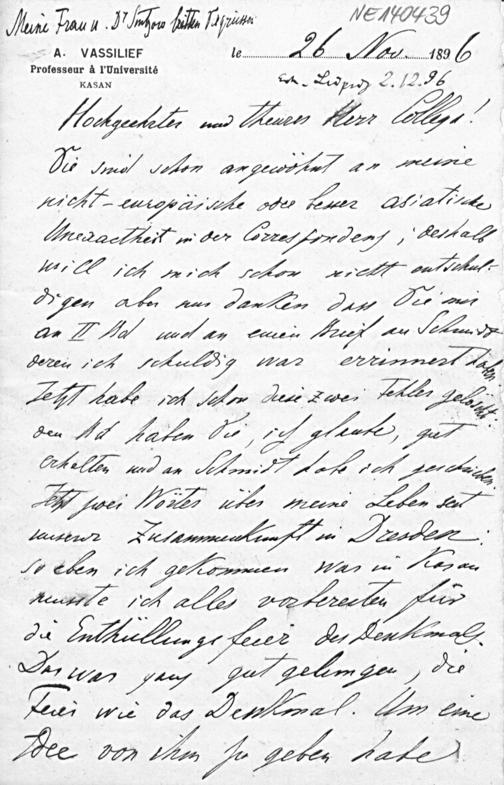 Meine Frau u. Dr Sintzow bitten Sie grüssen
NE140439
A. VASSILIEF
Professeur à l'Université
KASAN
le 26 Nov. 1896
Leipzig 2.12.96
Hochgeehrter und theurer Herr College!
Sie sind schon angewöhnt an meine
nicht-europäische oder besser asiatische
Unexactheit in der Correspondenz; deshalb
will ich mich schon nicht entschul-
digen aber nur danken dass Sie mir
an II Bd und an einen Brief an Schmidt
deren ich schuldig war errinnert haben.
Jetzt habe ich schon diese zwei Fehler
den Bd haben Sie, ich glaube, gut
erhalten und an Schmidt habe ich geschrieben.
Jetzt zwei Wörter über meine Leben seit
unserer Zusammenkunft in Dresden:
so eben ich gekommen war in Kasan
musste ich alles vorbereiten für
die Enthüllungsfeier des Denkmals.
Das war ganz gut gelungen, die
Feier wie das Denkmal. Um eine
Idee von ihm zu geben habe